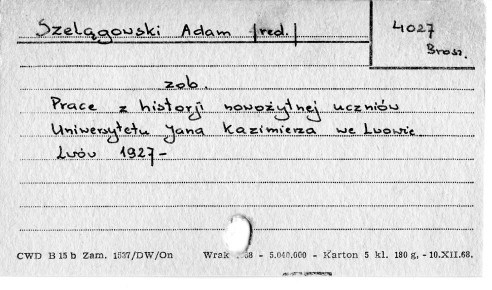 Szelągowski Adam /red./
4027
Brosz.
zob.
Prace z historji nowożytnej uczniów
Uniwersytetu Jana Kazimierza we Lwowie
Lwów 1927-
CWD B 15 b Zam. 1537/DW/On Wrak 68 - 5.040.000 - Karton 5 kl. 180 g, - 10.XII.68.